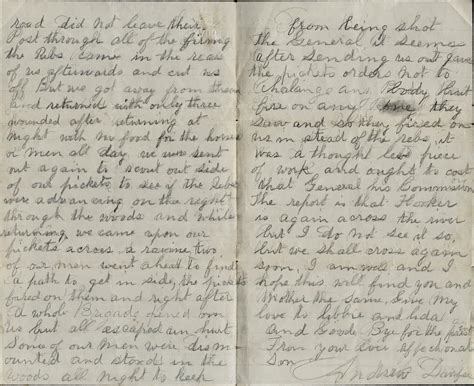 road did not leave their
Post through all of the firing
the Rebs Came in the rear
of us afterwards and cut us
off But we got away from them
and returned with only three
wounded after returning at
Night with no food for the horses
or men all day, we were sent
out again to scout out side
of our pickets to see if the Rebs
were advancing on the right
through the woods and while
returning we came upon our
pickets across a ravine two
of our men went ahead to find
a path to get in side, the pickets
fired on them and right after
a whole Brigade opened on
us but all escaped un hurt
Some of our men were dism
ounted and stood in the
woods all night to keep
from being shot
the General it Seems
after Sending us out gave
the pickets orders not to
Chalange any Boddy But
fire on any they
Saw and so they fired on
us in stead of the rebs, it
was a thought less piece
of work and ought to cost
that General his Commission
The report is that Hooker
is again across the river
but I do not See it so,
but we shall cross again
soon, I am well and I
hope this will find you and
Mother the Same, Give my
love to Libbie and Lida
and Good Bye for the
From your ever affectionate
Son Andrew